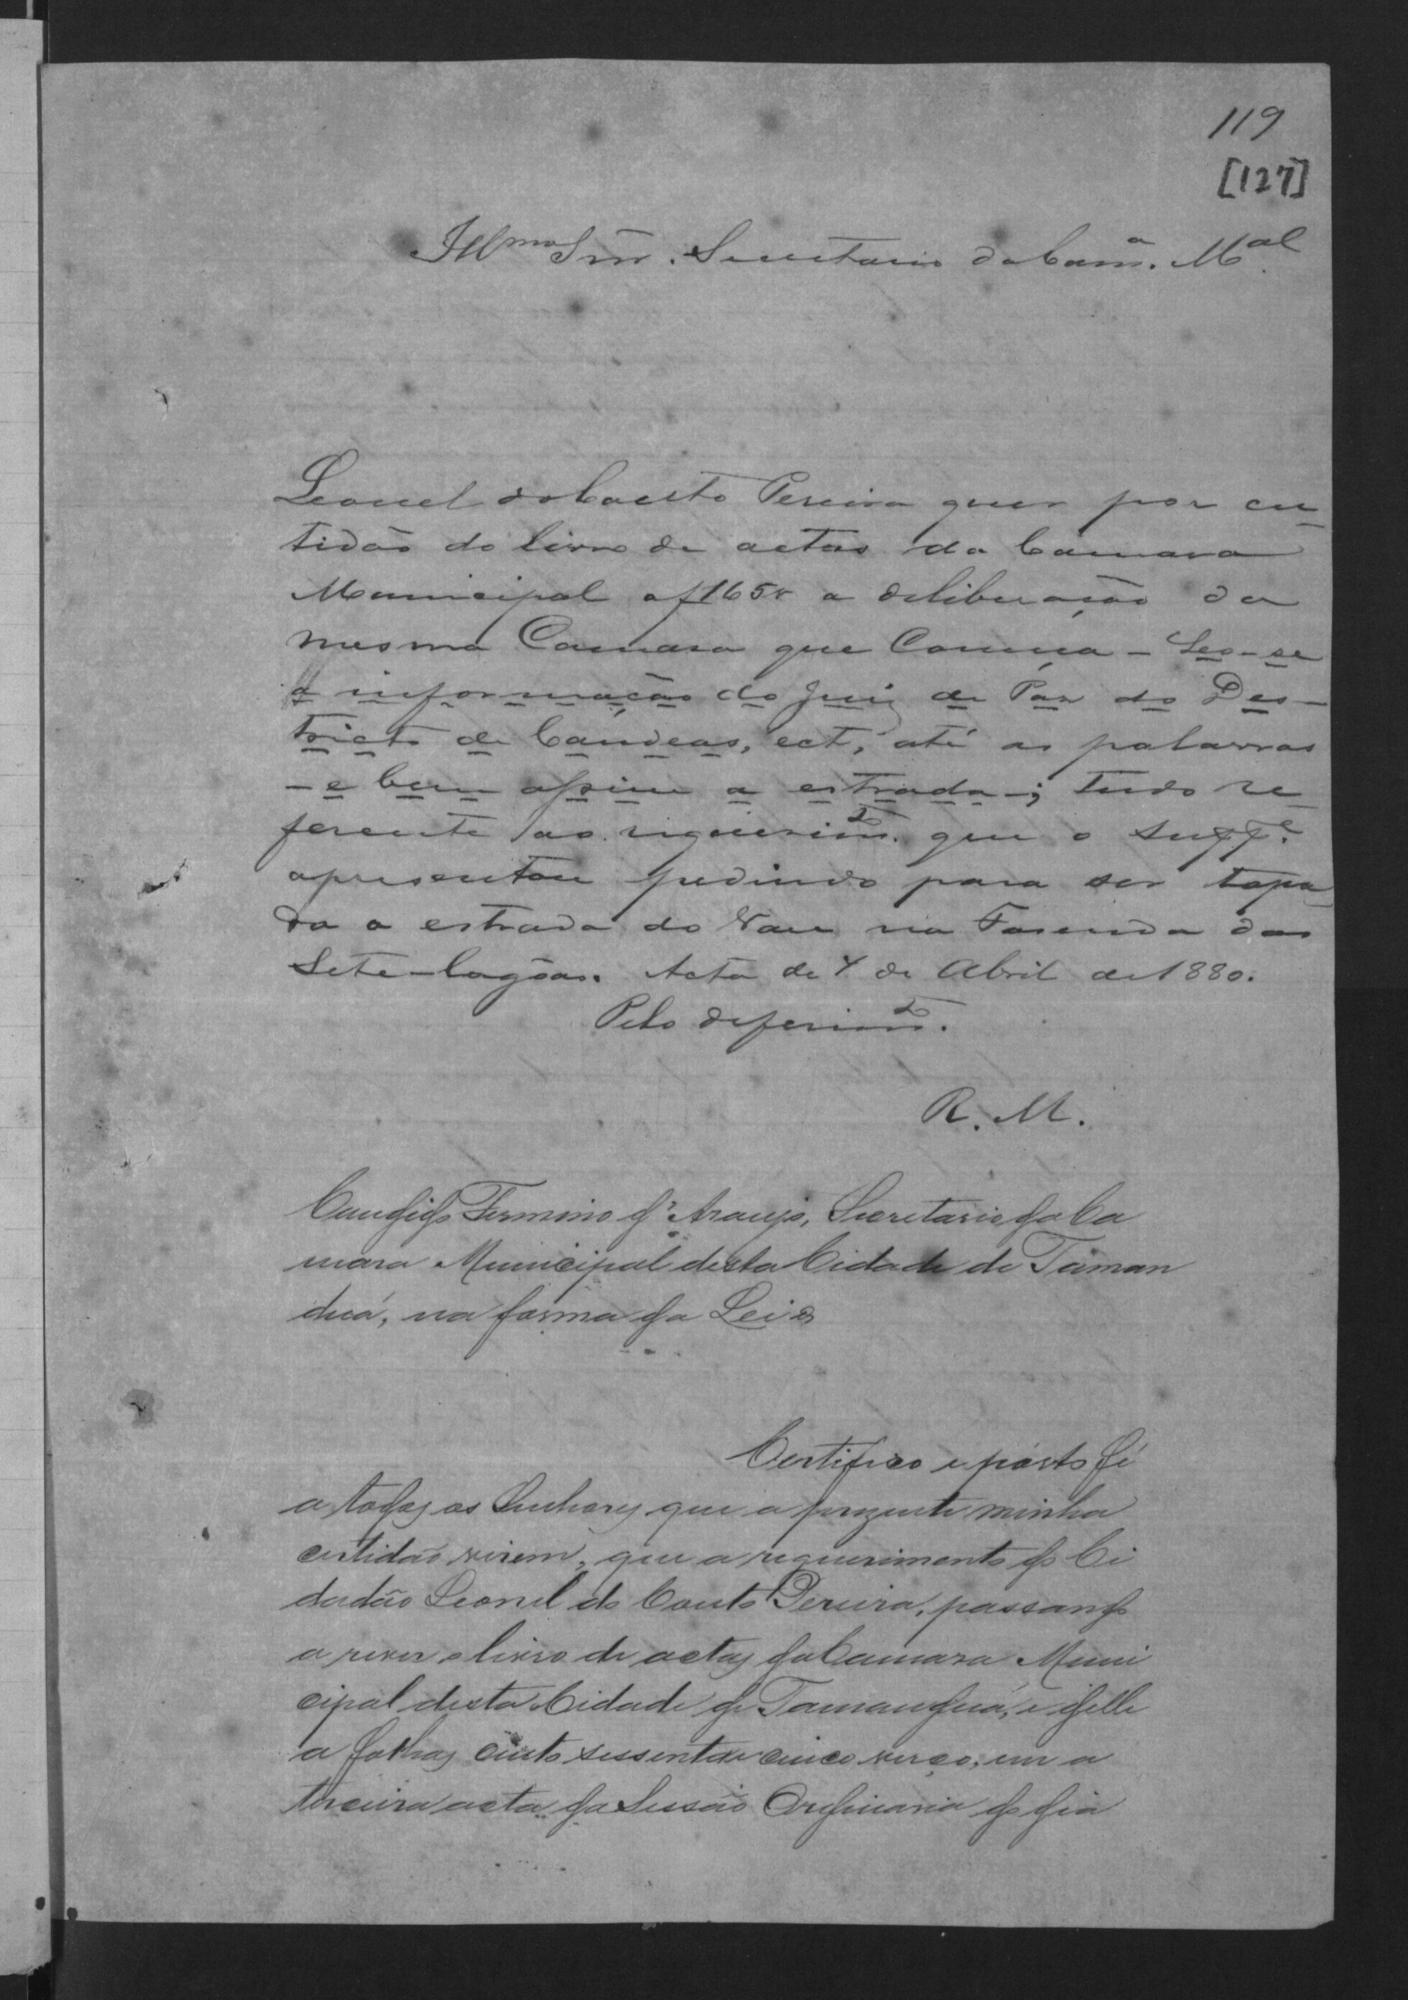 119
[127]
Illmo Snr. Secretario da Camª. Mal.
Leonel do Couto Pereira quer por cer-
tidão do livro de actas da Camara
Municipal a f 165v a deliberação da
mesma Camara que Comeca - Leo-se
a informação do Juiz de Paz do Des-
tricto de Candeas, ect, até as palavras
- e bem assim a estrada -; tudo re-
ferente ao requerimto. que o suppe.
apresentou pedindo para ser tapa-
da a estrada do Vau na Fasenda das
Sete-lagôas. Acta de 7 de Abril de 1880.
Pelo deferimto.
R. M.
Candido Firmino de Araujo, Secretario da Ca
mara Municipal desta Cidade de Taman
duá, na forma da Lei &
Certifico e pórto fé
a todos os Senhores que a prezente minha
certidão virem, que a requerimento do Ci
dadão Leonel do Couto Pereira, passando
a rever o livro de actas da Camara Muni
cipal desta Cidade de Tamanduá, e delle
a folhas cento sessenta e cinco verço, em a
terceira acta da Sessão Ordinaria do dia